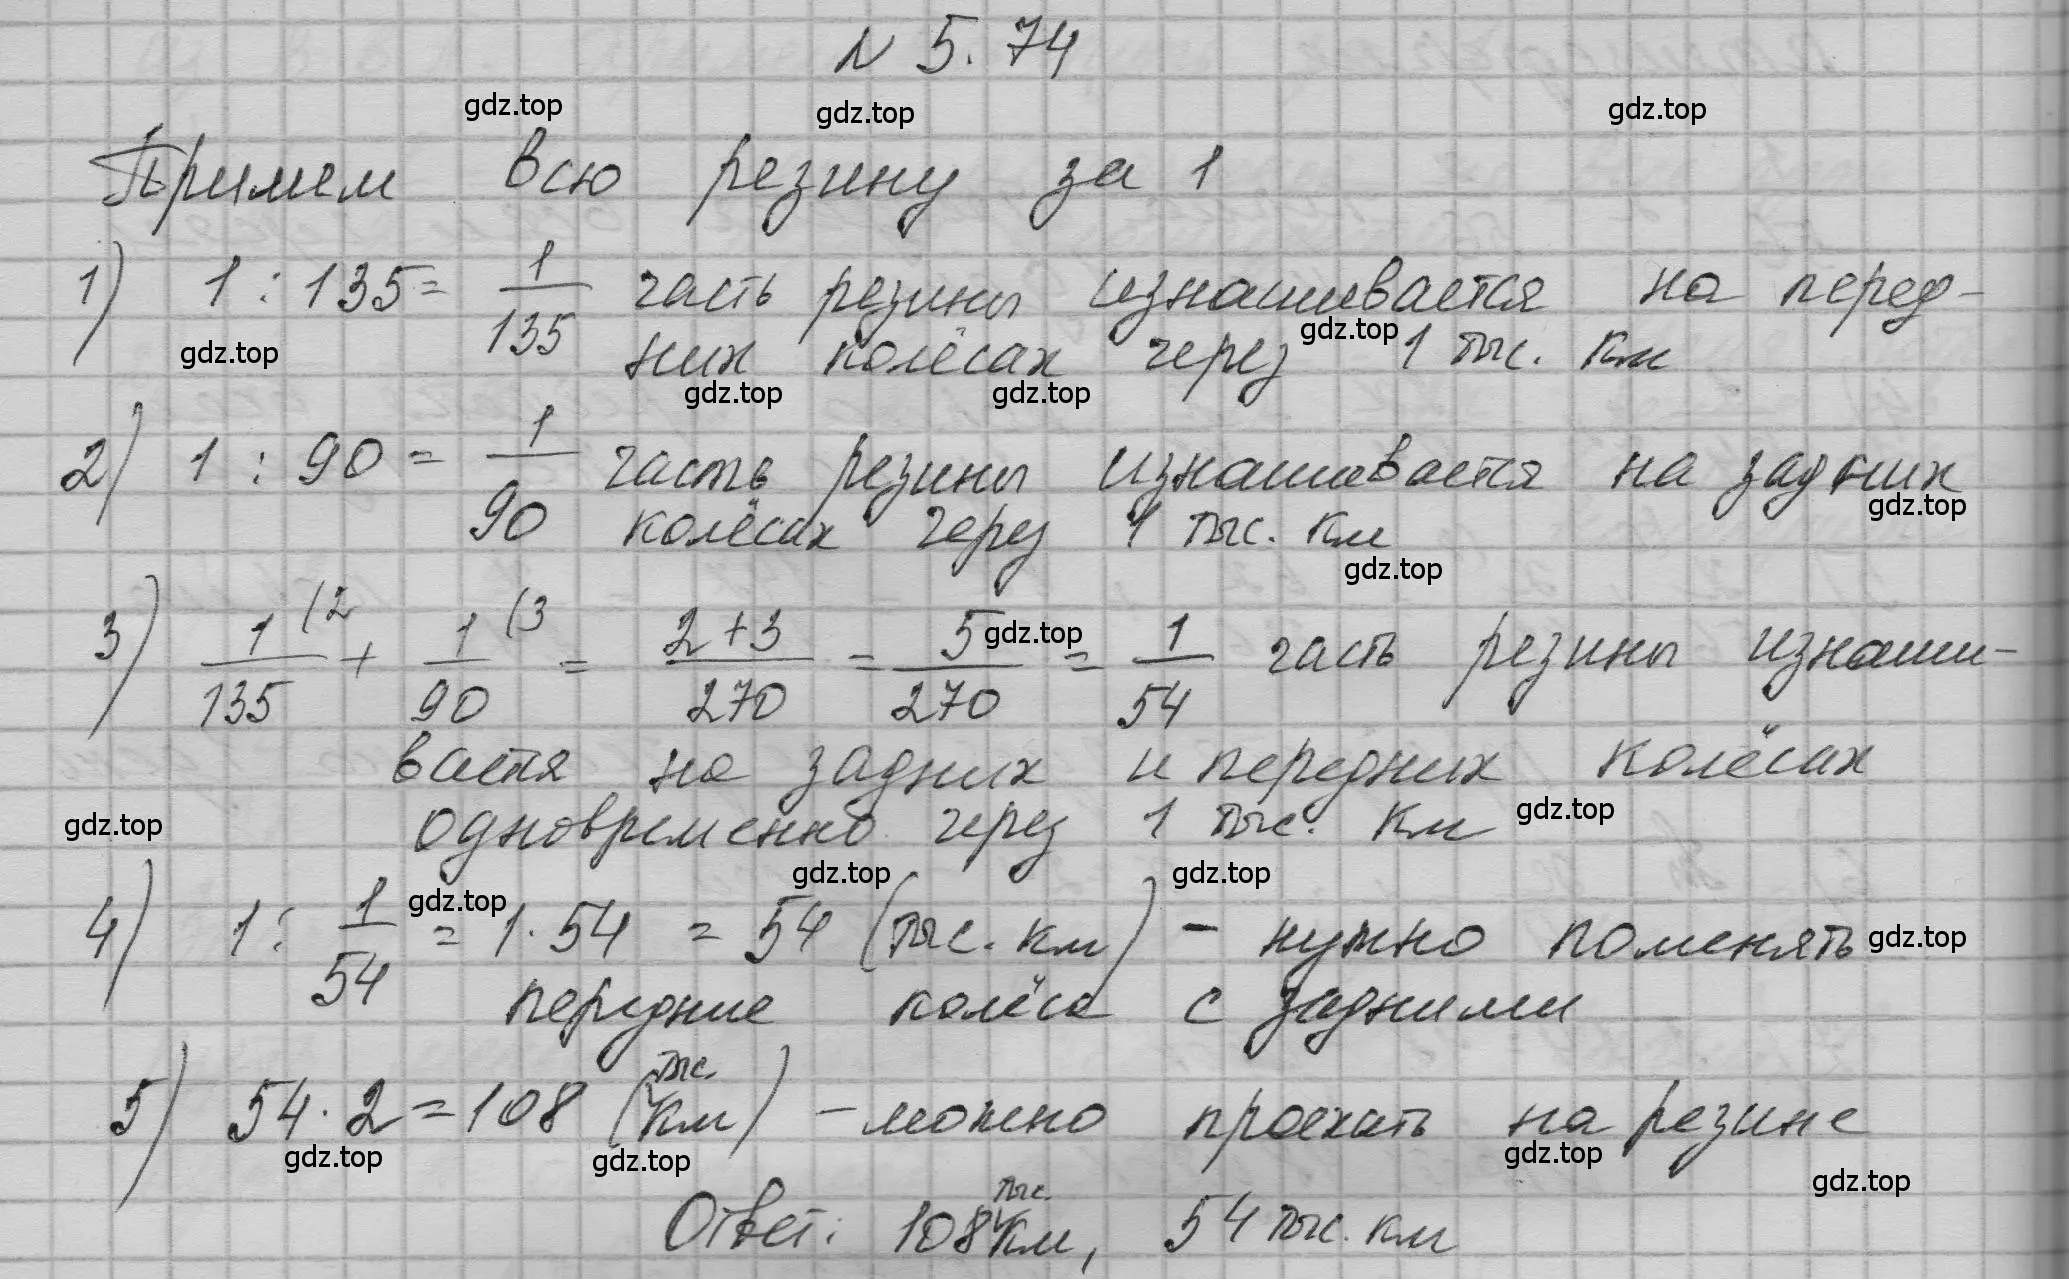 N 5.74
gdz.top gdz.top gdz.top
Примем всю резину за 1
1) 1 : 135 = 1/135 часть резины изнашивается на перед-
gdz.top них колёсах через gdz.top 1 тыс. км
gdz.top gdz.top
2) 1 : 90 = 1/90 часть резины изнашивается на задних
колёсах через 1 тыс. км gdz.top
gdz.top
3) 1/135 (2 + 1/90 (3 = 2+3/270 = 5/270 gdz.top = 1/54 часть резины изнаши-
вается на задних и передних колёсах
gdz.top одновременно через 1 тыс. км gdz.top
gdz.top gdz.top gdz.top
4) 1 : 1/54 = 1 · 54 = 54 (тыс. км) - нужно поменять gdz.top
передние колёса с задними
5) 54 · 2 = 108 (тыс. км) - можно проехать на резине
gdz.top gdz.top gdz.top gdz.top
Ответ: 108 тыс. км, 54 тыс. км